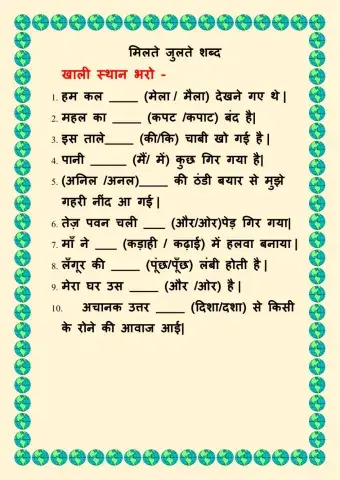 मिलते जुलते शब्द
खाली स्थान भरो -
1. हम कल _____ (मेला / मैला) देखने गए थे |
2. महल का _____ (कपट /कपाट) बंद है|
3. इस ताले_____ (की/कि) चाबी खो गई है |
4. पानी ______ (मैं/ में) कुछ गिर गया है|
5. (अनिल /अनल)_____ की ठंडी बयार से मुझे
गहरी नींद आ गई |
6. तेज़ पवन चली ___ (और/ओर)पेड़ गिर गया|
7. माँ ने ____ (कड़ाही / कढ़ाई) में हलवा बनाया |
8. लँगूर की _____ (पूंछ/पूँछ) लंबी होती है |
9. मेरा घर उस _____ (और /ओर) है |
10. अचानक उत्तर _____ (दिशा/दशा) से किसी
के रोने की आवाज आई|